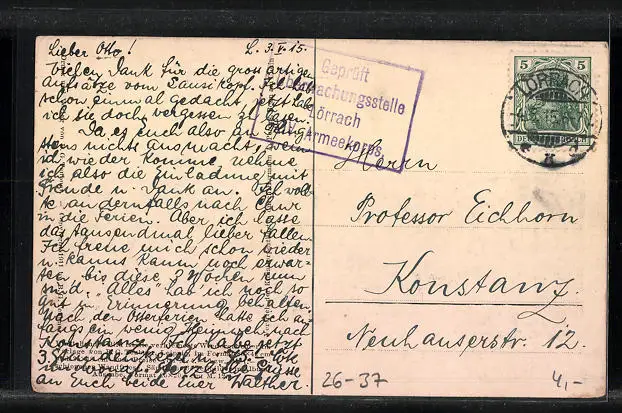 Lieber Otto! L. 3. V. 15.
Vielen Dank für die grossartigen
Aufsätze vom Lausikopf. Ich hab
schon einmal gedacht, jetzt hab
ich sie doch vergessen zu lesen.
Da es euch also an Pfing-
stens nichts ausmacht, wenn
ich wieder komme, nehme
ich also die Einladung mit
Freude u. Dank an. Ich woll-
te andernfalls nach Chur
in die Ferien. Aber ich lasse
das tausendmal lieber fallen.
Ich freue mich schon wieder
u. kanns kaum noch erwar-
ten, bis diese 3 Wochen rum
sind. "Alles" hab ich noch so
gut in erinnerung behalten.
Nach den Osterferien hatte ich an-
fangs ein wenig Heimweh nach
Konstanz. Ich habe jetzt
3. Herzliche Grüsse
an Euch beide hier Walther.
Geprüft
Überwachungsstelle
Lörrach
Armeekorps.
5 5
LÖRRACH
Herrn
Professor Eichhorn
Konstanz.
Neuhauserstr. 12.
26-37
4,-